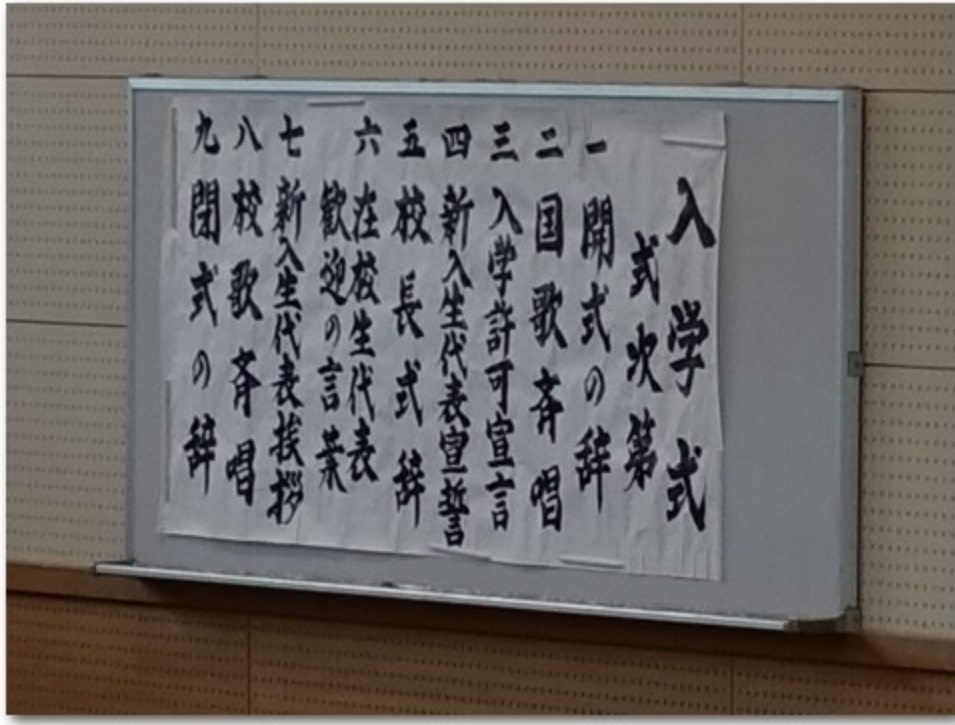 入学式
式次第
一 開式の辞
二 国歌斉唱
三 入学許可宣言
四 新入生代表宣誓
五 校長式辞
六 在校生代表
歓迎の言葉
七 新入生代表挨拶
八 校歌斉唱
九 閉式の辞